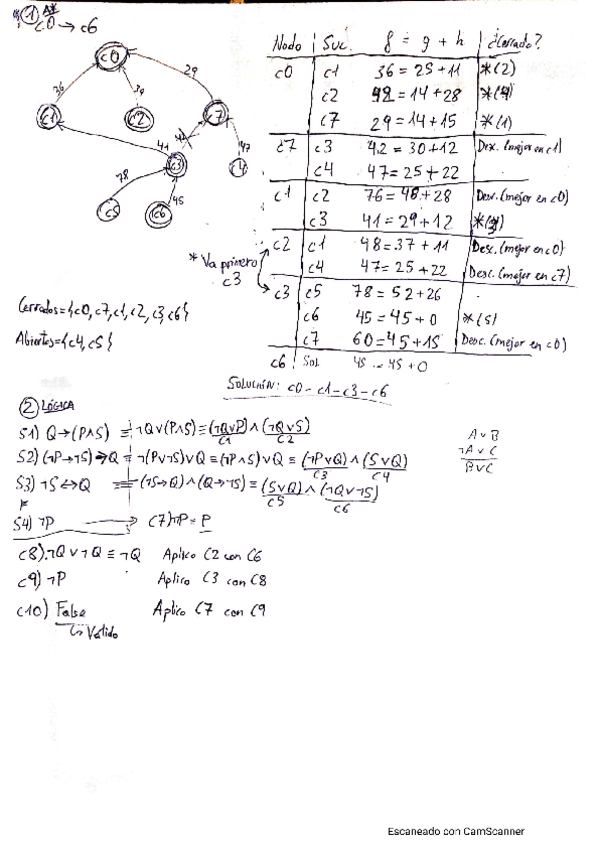 ① A*
c0 → c6
c0
36
39
29
c1
c2
c7
41
42
47
c3
c4
78
45
c5
c6
Nodo | Suc. | f = g + h | ¿Cerrado?
c0 | c1 | 36 = 25 + 11 | *(2)
c2 | 42 = 14 + 28 | *(4)
c7 | 29 = 14 + 15 | *(1)
c7 | c3 | 42 = 30 + 12 | Desc. (mejor en c1)
c4 | 47 = 25 + 22
c1 | c2 | 76 = 48 + 28 | Desc. (mejor en c0)
c3 | 41 = 29 + 12 | *(3)
c2 | c1 | 48 = 37 + 11 | Desc. (mejor en c0)
c4 | 47 = 25 + 22 | Desc. (mejor en c7)
c3 | c5 | 78 = 52 + 26
c6 | 45 = 45 + 0 | *(5)
c7 | 60 = 45 + 15 | Desc. (mejor en c0)
c6 | Sol | 45 = 45 + 0
* Va primero
c3
Cerrados = {c0, c7, c1, c2, c3, c6}
Abiertos = {c4, c5}
SOLUCIÓN: c0 - c1 - c3 - c6
② LÓGICA
S1) Q → (P∧S) ≡ ¬Q∨(P∧S) ≡ (¬Q∨P) ∧ (¬Q∨S)
C1 C2
S2) (¬P→¬S) → Q ≡ ¬(P∨¬S)∨Q ≡ (¬P∧S)∨Q ≡ (¬P∨Q) ∧ (S∨Q)
C3 C4
S3) ¬S ↔ Q ≡ (¬S→Q) ∧ (Q→¬S) ≡ (S∨Q) ∧ (¬Q∨¬S)
C5 C6
S4) ¬P → C7) ¬¬P = P
A∨B
¬A∨C
B∨C
C8) ¬Q∨¬Q ≡ ¬Q Aplico C2 con C6
C9) ¬P Aplico C3 con C8
C10) False Aplico C7 con C9
↳ Válido
Escaneado con CamScanner